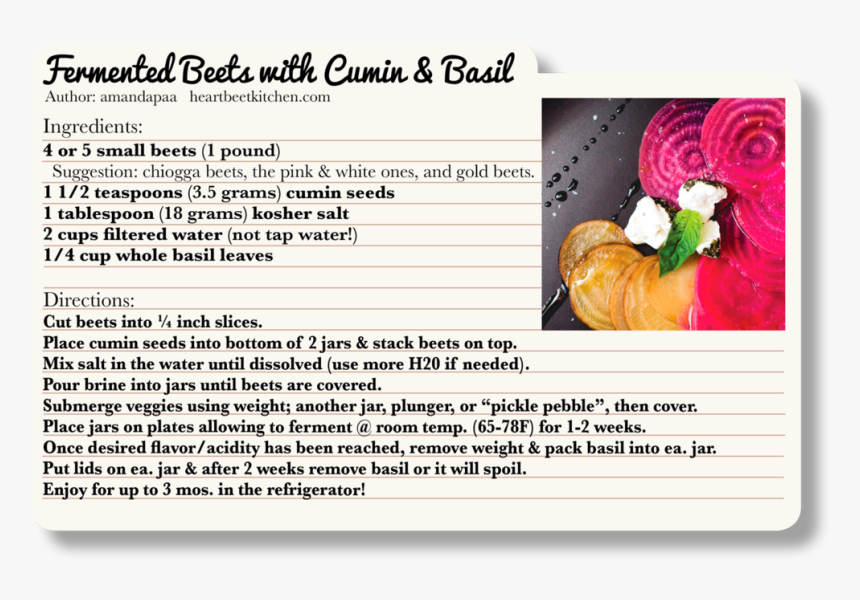 Fermented Beets with Cumin & Basil
Author: amandapaa heartbeetkitchen.com
Ingredients:
4 or 5 small beets (1 pound)
Suggestion: chiogga beets, the pink & white ones, and gold beets.
1 1/2 teaspoons (3.5 grams) cumin seeds
1 tablespoon (18 grams) kosher salt
2 cups filtered water (not tap water!)
1/4 cup whole basil leaves
Directions:
Cut beets into ¼ inch slices.
Place cumin seeds into bottom of 2 jars & stack beets on top.
Mix salt in the water until dissolved (use more H20 if needed).
Pour brine into jars until beets are covered.
Submerge veggies using weight; another jar, plunger, or “pickle pebble”, then cover.
Place jars on plates allowing to ferment @ room temp. (65-78F) for 1-2 weeks.
Once desired flavor/acidity has been reached, remove weight & pack basil into ea. jar.
Put lids on ea. jar & after 2 weeks remove basil or it will spoil.
Enjoy for up to 3 mos. in the refrigerator!